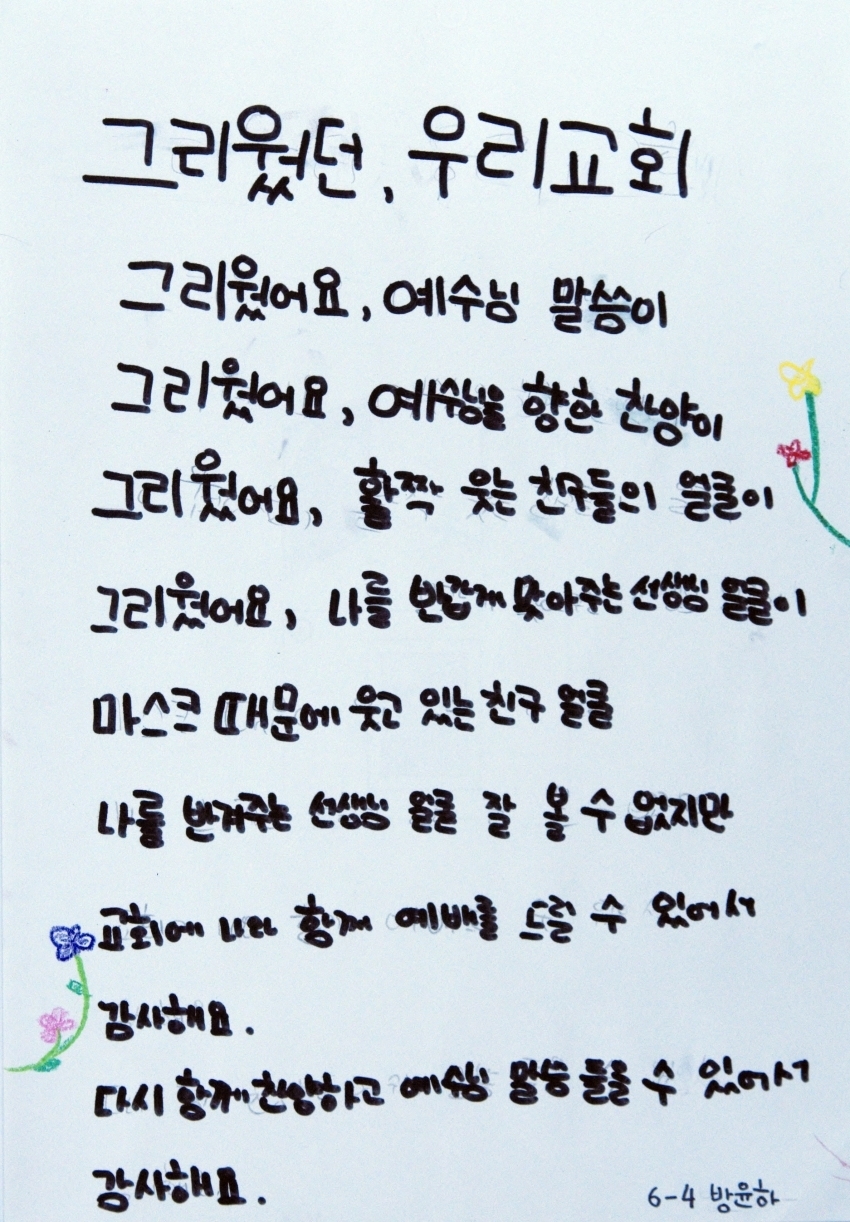 그리웠던, 우리교회
그리웠어요, 예수님 말씀이
그리웠어요, 예수님을 향한 찬양이
그리웠어요, 활짝 웃는 친구들의 얼굴이
그리웠어요, 나를 반갑게 맞아주는 선생님 얼굴이
마스크 때문에 웃고 있는 친구 얼굴
나를 반겨주는 선생님 얼굴 잘 볼 수 없지만
교회에 나와 함께 예배를 드릴 수 있어서
감사해요.
다시 함께 찬양하고 예수님 말씀 들을 수 있어서
감사해요.
6-4 방윤하